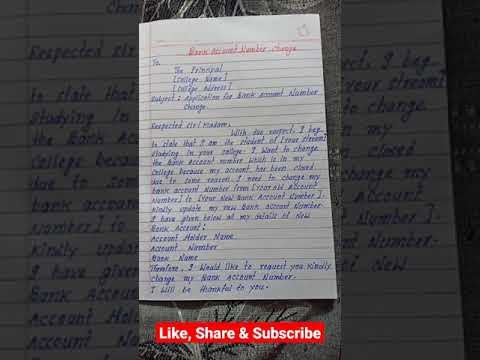 Bank Account Number Change
To,
The Principal
[College Name]
[College Address]
Subject: Application for Bank Account Number
Change.
Respected Sir/Madam,
With due respect, I beg
to state that I am the student of [your stream]
studying in your college. I want to change
the Bank Account number which is in my
college because my account has been closed
due to some reason. I need to change my
bank account number from [your old Account
Number] to [Your New Bank Account Number].
Kindly update my new Bank account Number.
I have given below all my details of New
Bank Account:
Account Holder Name
Account Number
Bank Name
Therefore, I would like to request you kindly
change my Bank Account Number.
I will be thankful to you.
Like, Share & Subscribe